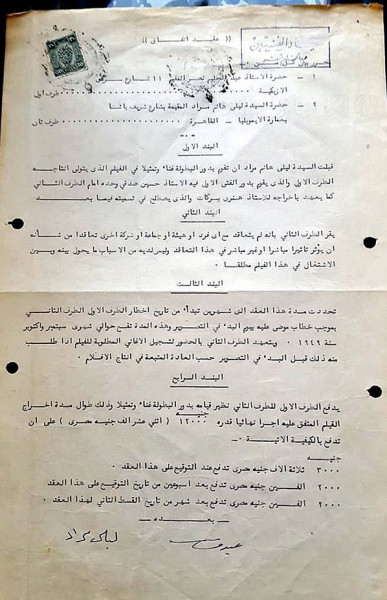 (( عقد اتفاق ))
١ ـ حضرة الاستاذ عبد الحليم نصر المقيم ١١ شارع
الازبكية طرف اول
٢ ـ حضرة السيدة ليلى هانم مراد المقيمة بشارع شريف باشا
بعمارة الايموبليا ـ القاهرة طرف ثانى
البند الاول
قبلت السيدة ليلى هانم مراد ان تقوم بدور البطولة غناء وتمثيلا فى الفيلم الذى يتولى انتاجه
الطرف الاول والذى يقوم بدور الفتى الاول فيه الاستاذ حسين صدقى وحده امام الطرف الثانى
كما يعهد باخراجه للاستاذ هنرى بركات والذى يصطلح فى تسميته فيما بعد
البند الثانى
يقر الطرف الثانى بانه لم يتعاقد مع اى فرد او هيئة او جماعة او شركة اخرى تعاقدا من شأنه
ان يؤثر تاثيرا مباشرا او غير مباشر فى هذا التعاقد وليس لديه من الاسباب ما يحول بينه وبين
الاشتغال فى هذا الفيلم مطلقا
البند الثالث
تحددت مدة هذا العقد الى شهرين تبدأ من تاريخ اخطار الطرف الاول للطرف الثانى
بموجب خطاب موصى عليه بيوم البدء فى التصوير وهذه المدة تقع حوالى شهرى سبتمبر واكتوبر
سنة ١٩٤٩ ويتعهد الطرف الثانى بالحضور لتسجيل الاغانى المطلوبة للفيلم اذا طلب
منه ذلك قبل البدء فى التصوير حسب العادة المتبعة فى انتاج الافلام
البند الرابع
يدفع الطرف الاول للطرف الثانى نظير قيامه بدور البطولة غناء وتمثيلا وذلك طوال مدة اخراج
الفيلم المتفق عليه اجرا نهائيا قدره ١٢٠٠٠ جنيه ( اثنى عشر الف جنيه مصرى ) على ان
تدفع بالكيفية الاتية
جنيه
٣٠٠٠ ثلاثة آلاف جنيه مصرى تدفع عند التوقيع على هذا العقد
٢٠٠٠ الفين جنيه مصرى تدفع بعد اسبوعين من تاريخ التوقيع على هذا العقد
٢٠٠٠ الفين جنيه مصرى تدفع بعد شهر من تاريخ القسط الثانى لهذا العقد
بعده
ليلى مراد